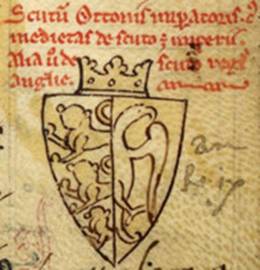 Scutũ Ottonis imꝑatoris. cꝰ
medietas de scuto ꝫ imperii.
Alia ũ de scuto regꝭ
anglie.